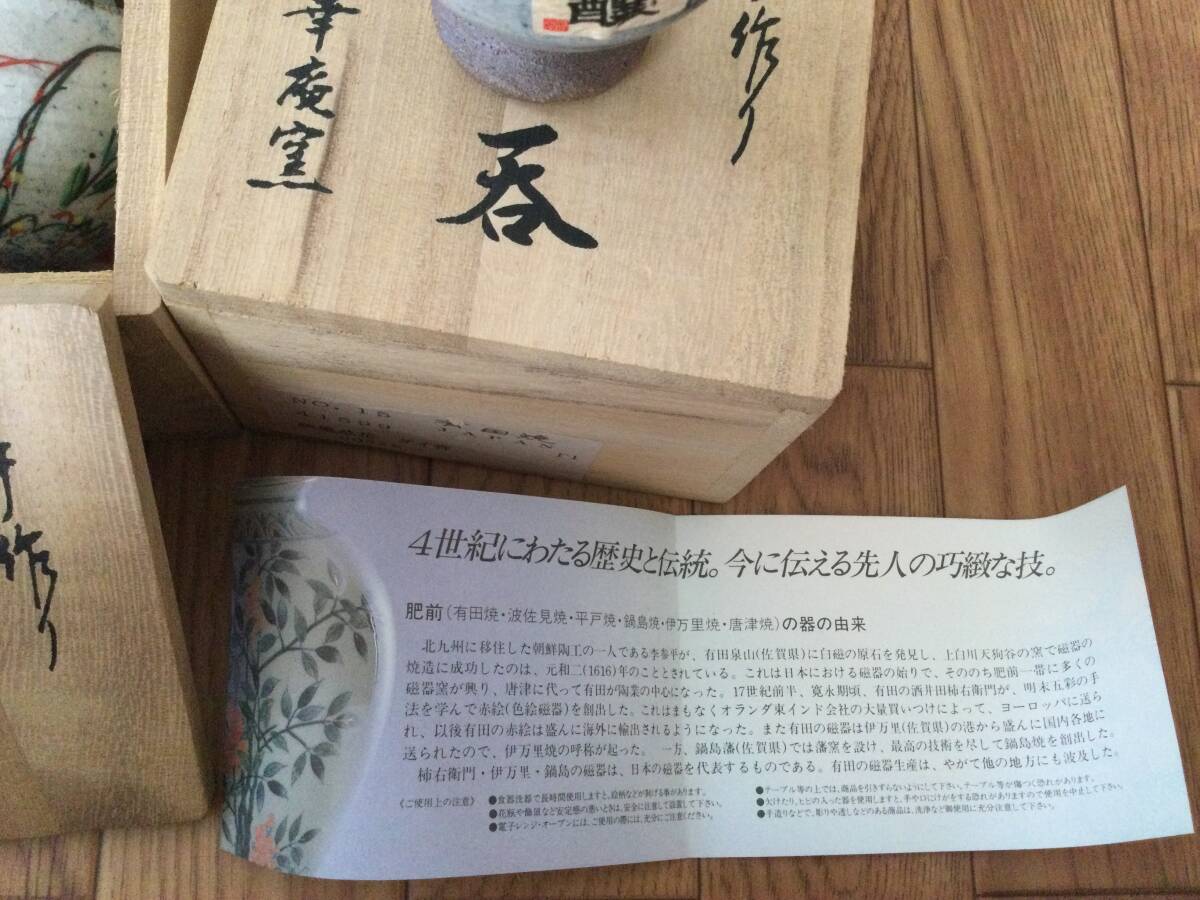 幸庵窯
呑
作り
醸
作り
4世紀にわたる歴史と伝統。今に伝える先人の巧緻な技。
肥前(有田焼・波佐見焼・平戸焼・鍋島焼・伊万里焼・唐津焼)の器の由来
北九州に移住した朝鮮陶工の一人である李参平が、有田泉山(佐賀県)に白磁の原石を発見し、上白川天狗谷の窯で磁器の
焼造に成功したのは、元和二(1616)年のこととされている。これは日本における磁器の始りで、そののち肥前一帯に多くの
磁器窯が興り、唐津に代って有田が陶業の中心になった。17世紀前半、寛永期頃、有田の酒井田柿右衛門が、明末五彩の手
法を学んで赤絵(色絵磁器)を創出した。これはまもなくオランダ東インド会社の大量買いつけによって、ヨーロッパに送ら
れ、以後有田の赤絵は盛んに海外に輸出されるようになった。また有田の磁器は伊万里(佐賀県)の港から盛んに国内各地に
送られたので、伊万里焼の呼称が起った。一方、鍋島藩(佐賀県)では藩窯を設け、最高の技術を尽して鍋島焼を創出した。
柿右衛門・伊万里・鍋島の磁器は、日本の磁器を代表するものである。有田の磁器生産は、やがて他の地方にも波及した。
《ご使用上の注意》
●食器洗器で長時間使用しますと、絵柄などが剥げる事があります。
●花瓶や飾皿など安定感の悪いときは、安全に注意して設置して下さい。
●電子レンジ・オーブンには、ご使用の際には、充分にご注意ください。
●テーブル等の上では、商品を引きずらないようにして下さい。テーブル等が傷つく恐れがあります。
●欠けたり、ヒビの入った器を使用しますと、手や口にけがをする恐れがありますので使用を中止して下さい。
●手造りなどで、彫りや透しなどのある商品は、洗浄など御使用に充分注意して下さい。